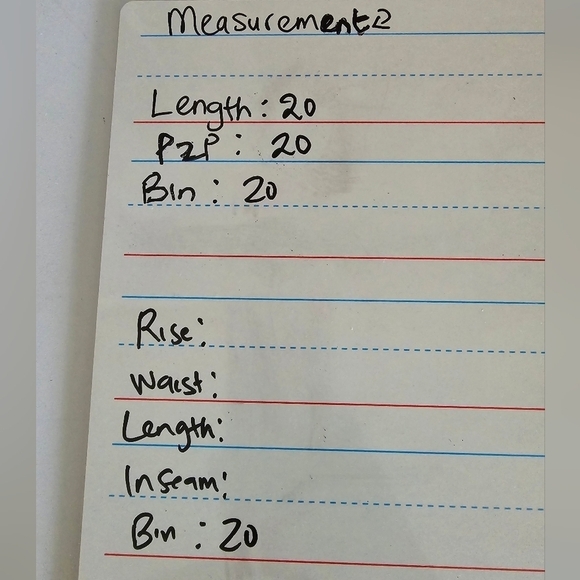 Measurements
Length: 20
P2P: 20
Bin: 20
Rise:
Waist:
Length:
Inseam:
Bin: 20